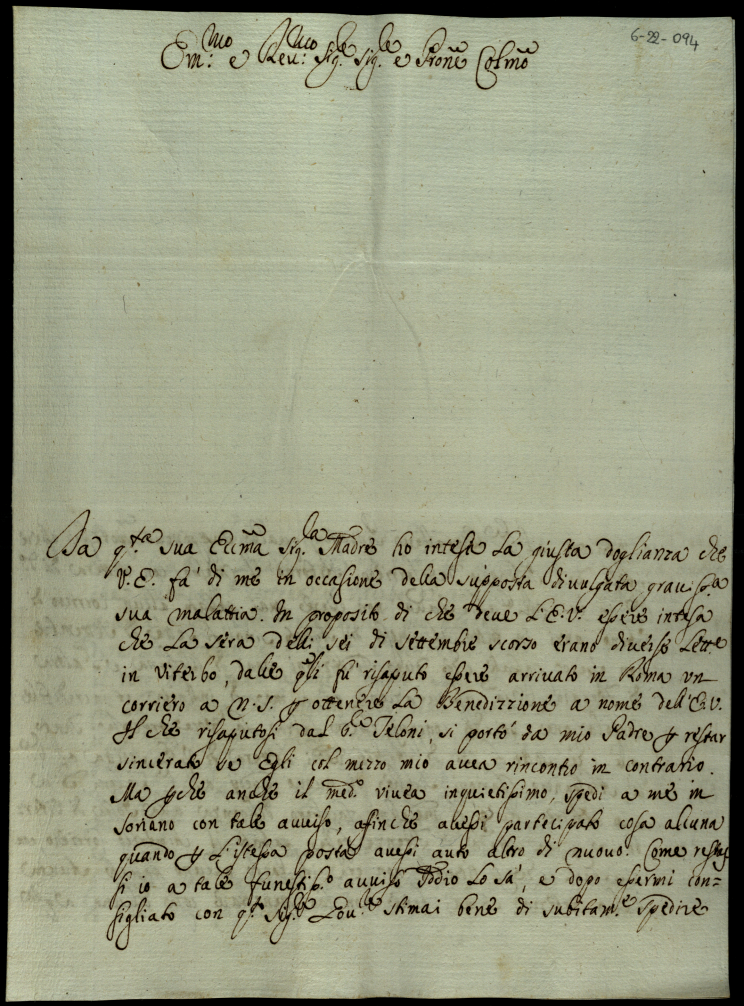 6-22-094
Em:mo e Reu:mo Sig.le Sig.le e Prone Colmo
Da q.sta sua Eccma Sig.la Madre ho intesa la giusta doglianza che
V. E. fa' di me in occasione della supposta divulgata grauis.ma
sua malattia. In proposito di che deue L'E.V. essere intesa
che la sera delli sei di settembre scorso erano diverse Lette
in Viterbo, dalle qli fu' risaputo essere arrivato in Roma un
corriero a N. S. p ottenere la Benedizzione a nome dell'E.V.
Il che risaputosi dal Teloni, si portò da mio Padre p restar
sincerato se Egli col mezzo mio auea rincontro in contrario.
Ma pche anche il med.o viuea inquietissimo, spedì a me in
Soriano con tale auuiso, afinche auessi partecipato cosa alcuna
quando p l'istessa posta auessi auto altro di nuouo. Come restas
si io a tale funestis.o auuiso Iddio lo sà, e dopo essermi con=
sigliato con q.to Sig.re stimai bene di subitam.e spedire